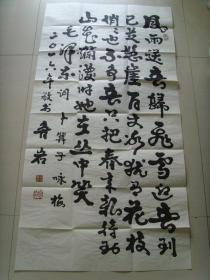 風雨送春歸飛雪迎春到
已是懸崖百丈冰猶有花枝
俏俏也不争春只把春来報待到
山花爛漫时她在丛中笑
毛泽东词卜算子咏梅
二〇一六年敬书 春岩